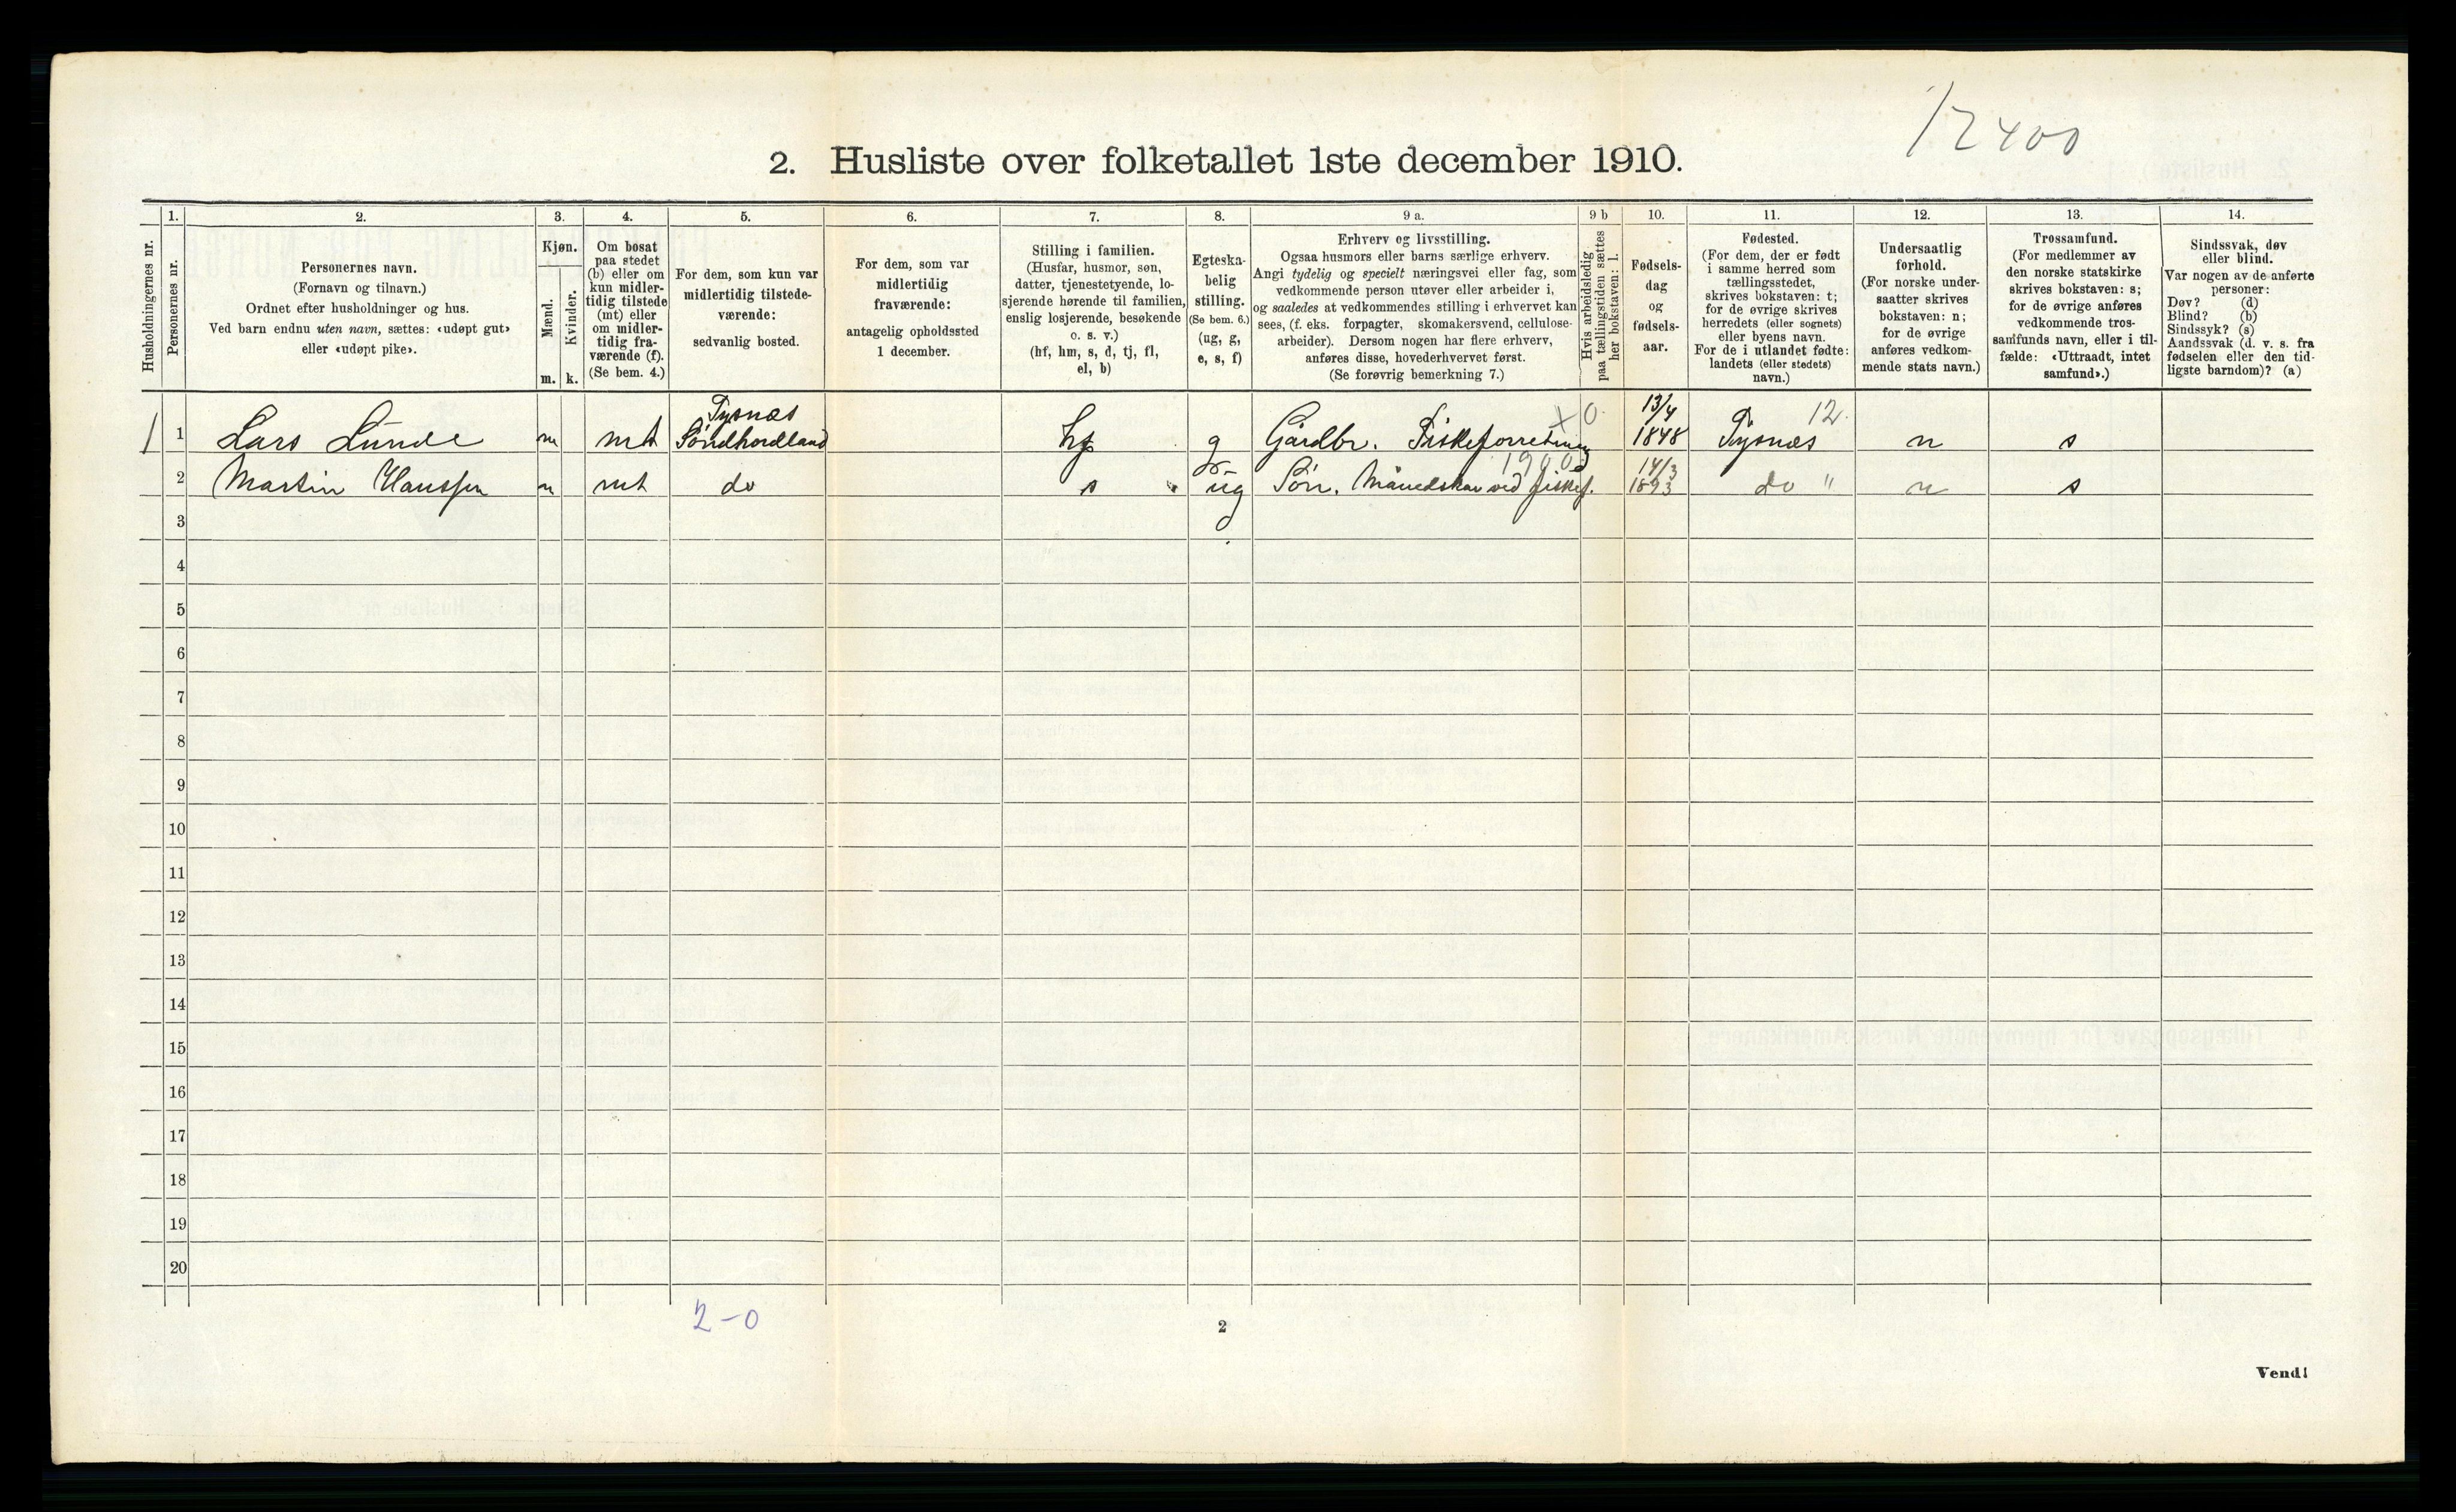 12400
2. Husliste over folketallet 1ste december 1910.
Husholdningernes nr.
1.
Personernes nr.
2.
Personernes navn.
(Fornavn og tilnavn.)
Ordnet efter husholdninger og hus.
Ved barn endnu uten navn, sættes: «udøpt gut»
eller «udøpt pike».
3.
Kjøn.
Mænd.
Kvinder.
m. k.
4.
Om bosat
paa stedet
(b) eller om
kun midler-
tidig tilstede
(mt) eller
om midler-
tidig fra-
værende (f).
(Se bem. 4.)
5.
For dem, som kun var
midlertidig tilstede-
værende:
sedvanlig bosted.
6.
For dem, som var
midlertidig
fraværende:
antagelig opholdssted
1 december.
7.
Stilling i familien.
(Husfar, husmor, søn,
datter, tjenestetyende, lo-
sjerende hørende til familien,
enslig losjerende, besøkende
o. s. v.)
(hf, hm, s, d, tj, fl,
el, b)
8.
Egteska-
belig
stilling.
(Se bem. 6.)
(ug, g,
e, s, f)
9 a.
Erhverv og livsstilling.
Ogsaa husmors eller barns særlige erhverv.
Angi tydelig og specielt næringsvei eller fag, som
vedkommende person utøver eller arbeider i,
og saaledes at vedkommendes stilling i erhvervet kan
sees, (f. eks. forpagter, skomakersvend, cellulose-
arbeider). Dersom nogen har flere erhverv,
anføres disse, hovederhvervet først.
(Se forøvrig bemerkning 7.)
9 b
Hvis arbeidsledig
paa tællingstiden sættes
her bokstaven: l.
10.
Fødsels-
dag
og
fødsels-
aar.
11.
Fødested.
(For dem, der er født
i samme herred som
tællingsstedet,
skrives bokstaven: t;
for de øvrige skrives
herredets (eller sognets)
eller byens navn.
For de i utlandet fødte:
landets (eller stedets)
navn.)
12.
Undersaatlig
forhold.
(For norske under-
saatter skrives
bokstaven: n;
for de øvrige
anføres vedkom-
mende stats navn.)
13.
Trossamfund.
(For medlemmer av
den norske statskirke
skrives bokstaven: s;
for de øvrige anføres
vedkommende tros-
samfunds navn, eller i til-
fælde: «Uttraadt, intet
samfund».)
14.
Sindssvak, døv
eller blind.
Var nogen av de anførte
personer:
Døv? (d)
Blind? (b)
Sindssyk? (s)
Aandssvak (d. v. s. fra
fødselen eller den tid-
ligste barndom)? (a)
1 1 Lars Lunde m mt Tysnæs Söndhordland hf g Gårdbr. Fiskeforretning x 0 13/4 1848 Tysnæs 12. n s
2 Martin Hanssen m mt do s ug Sön. Månedskar ved fiskef. 1900 14/3 1893 do " n s
3
4
5
6
7
8
9
10
11
12
13
14
15
16
17
18
19
20
2-0
2
Vend!